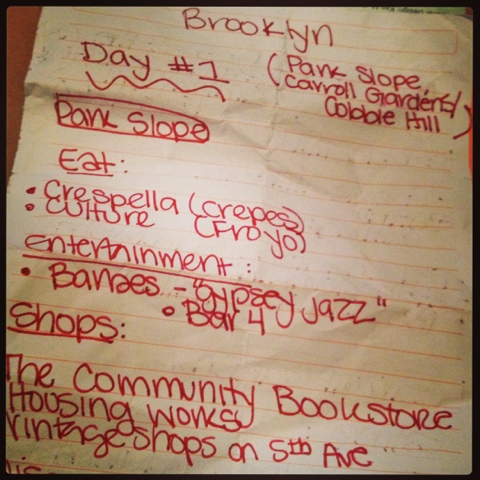 Brooklyn
Day #1
(Park Slope
Carroll Gardens/
Cobble Hill)
Park Slope
Eat:
• Crespella (crepes)
• Culture (Froyo)
entertainment:
• Barbes - "gypsey jazz"
• Bar 4
Shops:
The Community Bookstore
Housing Works
Vintage shops on 5th Ave